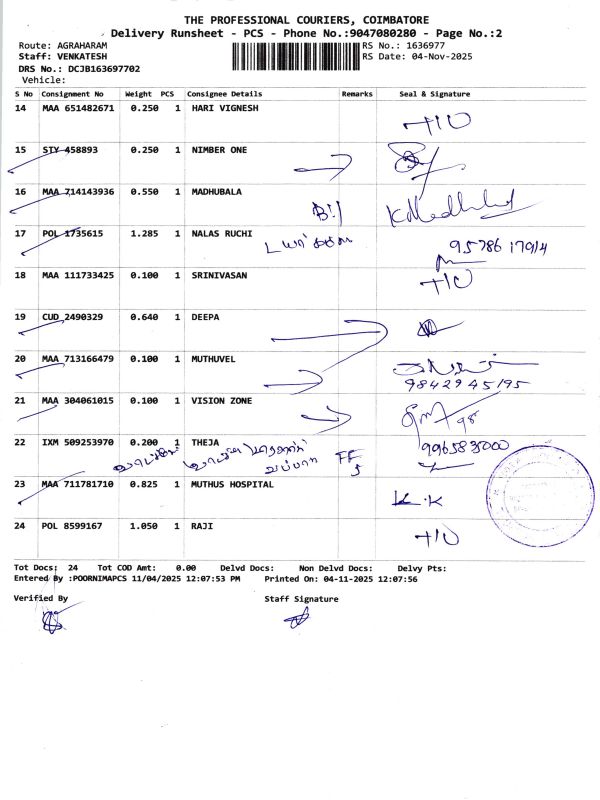 THE PROFESSIONAL COURIERS, COIMBATORE
Delivery Runsheet - PCS - Phone No.:9047080280 - Page No.:2
Route: AGRAHARAM
RS No.: 1636977
Staff: VENKATESH
RS Date: 04-Nov-2025
DRS No.: DCJB163697702
Vehicle:
S No Consignment No Weight PCS Consignee Details Remarks Seal & Signature
14 MAA 651482671 0.250 1 HARI VIGNESH
15 STY 458893 0.250 1 NIMBER ONE
16 MAA 714143936 0.550 1 MADHUBALA
17 POL 1735615 1.285 1 NALAS RUCHI
18 MAA 111733425 0.100 1 SRINIVASAN
19 CUD 2490329 0.640 1 DEEPA
20 MAA 713166479 0.100 1 MUTHUVEL
9842945195
21 MAA 304061015 0.100 1 VISION ZONE
22 IXM 509253970 0.200 1 THEJA
23 MAA 711781710 0.825 1 MUTHUS HOSPITAL K.K
24 POL 8599167 1.050 1 RAJI
Tot Docs: 24 Tot COD Amt: 0.00 Delvd Docs: Non Delvd Docs: Delvy Pts:
Entered By :POORNIMAPCS 11/04/2025 12:07:53 PM Printed On: 04-11-2025 12:07:56
Verified By Staff Signature